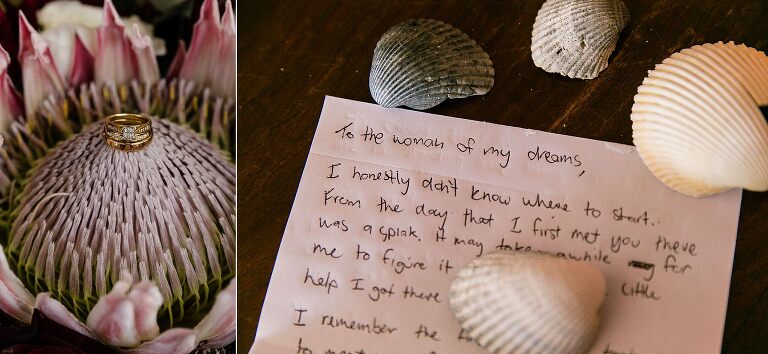 To the woman of my dreams,
I honestly don't know where to start.
From the day that I first met you there
was a spark. It may take awhile for
me to figure it
help I got there little
I remember the
to